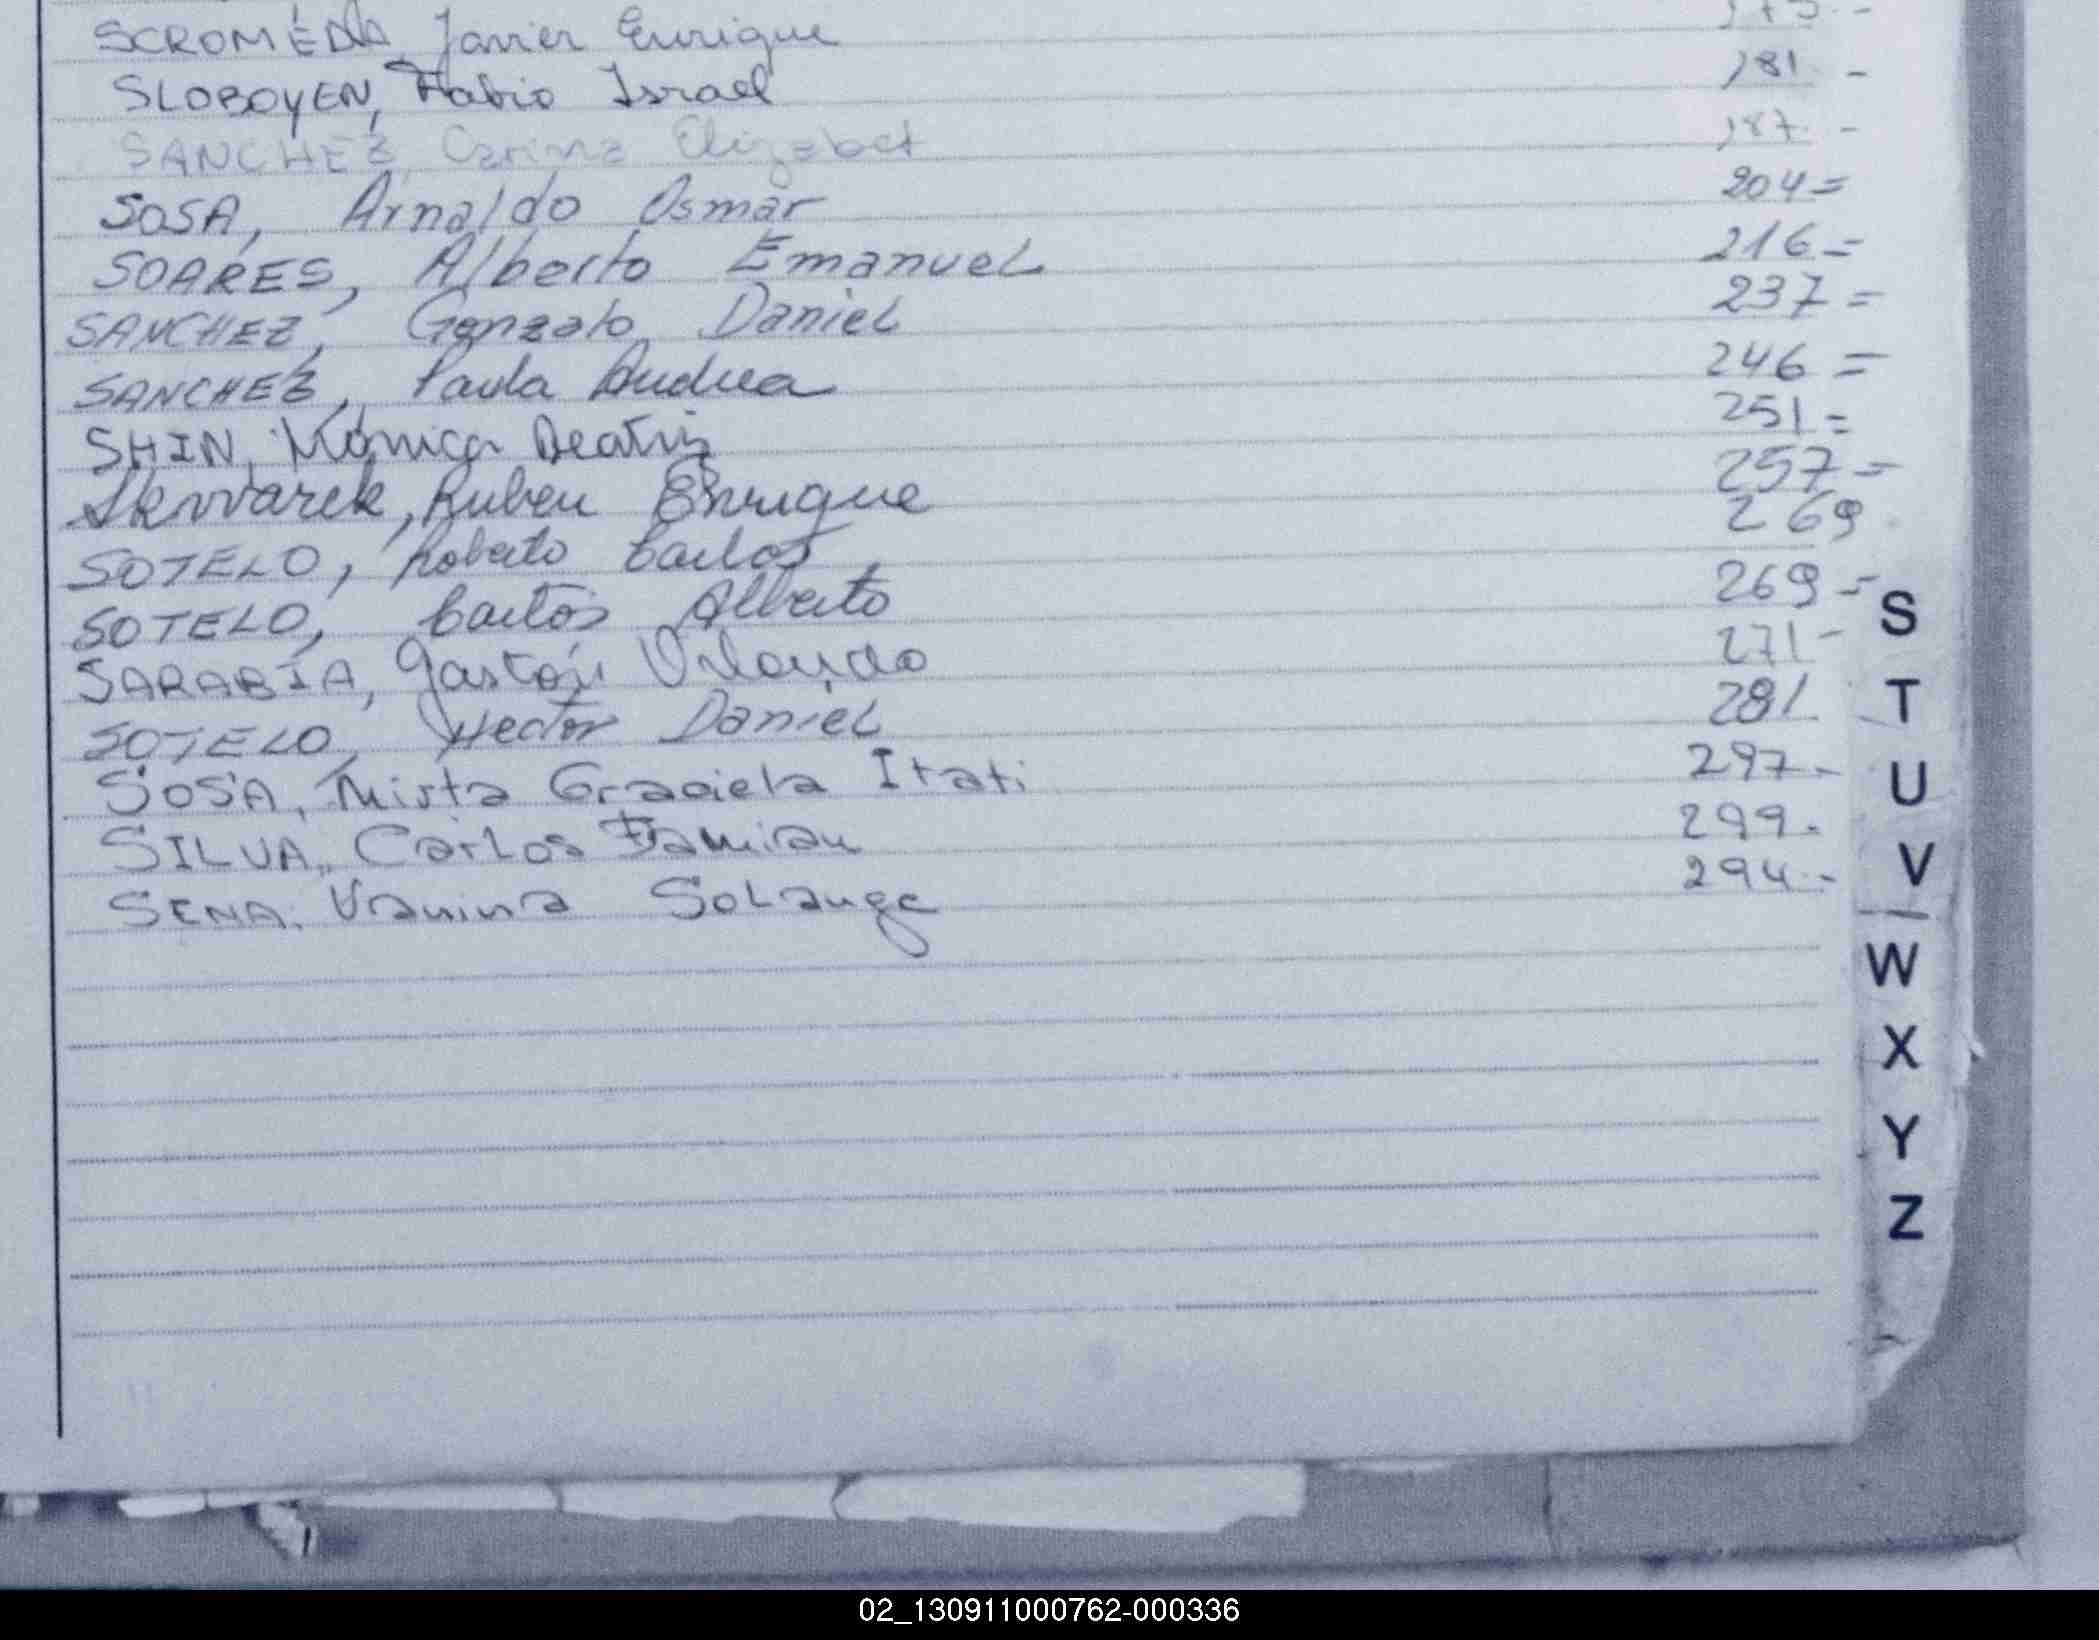 SCROMEDA, Javier Enrique 175.-
SLOBOYEN, Fabio Israel 181 -
SANCHEZ, Carina Elizabet 187. -
SOSA, Arnaldo Osmar 204=
SOARES, Alberto Emanuel 216=
SANCHEZ, Gonzalo Daniel 237=
SANCHEZ, Paula Andrea 246=
SHIN, Mónica Beatriz 251=
Skrvarek, Ruben Enrique 257=
SOTELO, Roberto Carlos 269
SOTELO, Carlos Alberto 269=
SARABIA, Gastón Orlando 271-
SOTELO, Hector Daniel 281
SOSA, Mirta Graciela Itati 297-
SILVA, Carlos Damian 299.
SENA, Vanina Solange 294.-
S
T
U
V
W
X
Y
Z
02_130911000762-000336